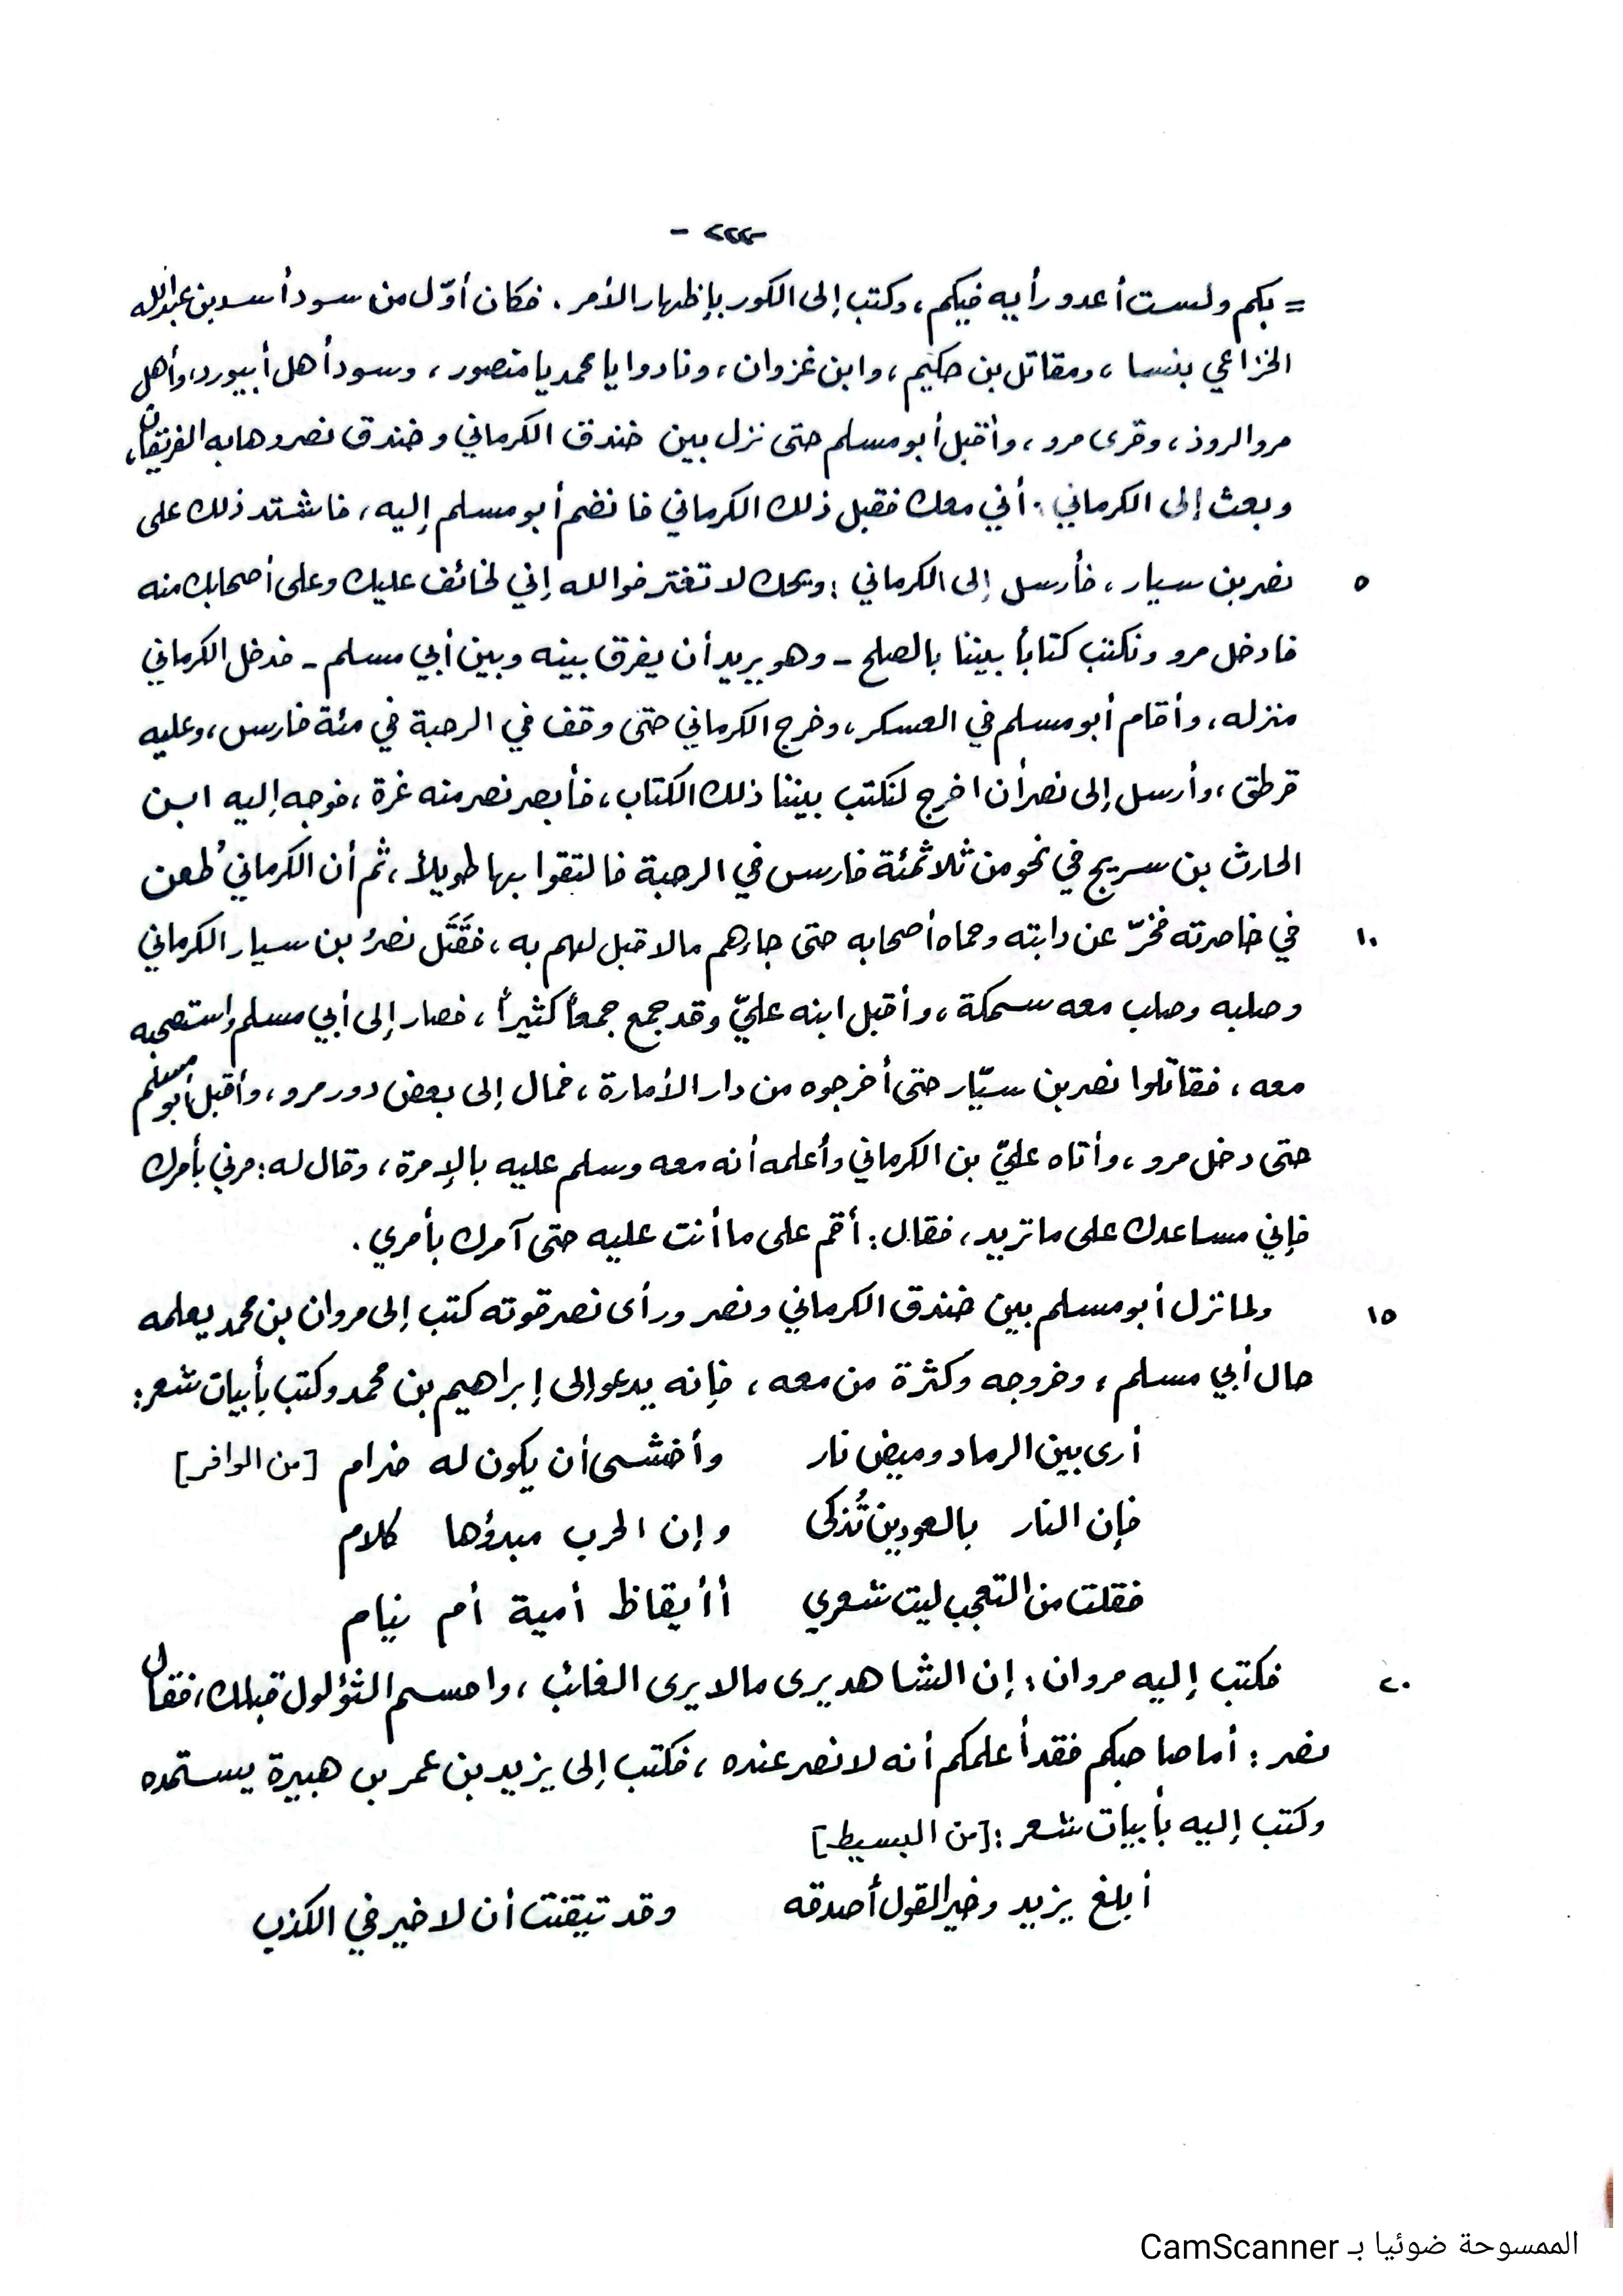 - ٢٢٢ -
= بكم ولست أعدو رأيه فيكم، وكتب إلى الكور بإظهار الأمر. فكان أوّل من سود أسد بن عبدالله
الخزاعي بنسا، ومقاتل بن حكيم، وابن غزوان، ونادوا يا محمد يا منصور، وسود أهل أبيورد، وأهل
مرو الروذ، وقرى مرو، وأقبل أبو مسلم حتى نزل بين خندق الكرماني وخندق نصر وهابه الفريقان،
وبعث إلى الكرماني: أني معك فقبل ذلك الكرماني فانضم أبو مسلم إليه، فاشتد ذلك على
٥ نصر بن سيار، فأرسل إلى الكرماني: ويحك لا تغتر فوالله إني لخائف عليك وعلى أصحابك منه
فادخل مرو ونكتب كتاباً بيننا بالصلح - وهو يريد أن يفرق بينه وبين أبي مسلم - فدخل الكرماني
منزله، وأقام أبو مسلم في العسكر، وخرج الكرماني حتى وقف في الرحبة في مئة فارس، وعليه
قرطق، وأرسل إلى نصر أن اخرج لنكتب بيننا ذلك الكتاب، فأبصر نصر منه غرة، فوجه إليه ابن
الحارث بن سريج في نحو من ثلاثمئة فارس في الرحبة فالتقوا بها طويلاً، ثم أن الكرماني طُعن
١٠ في خاصرته فخرّ عن دابته وحماه أصحابه حتى جاءهم مالا قبل لهم به، فقَتَل نصرُ بن سيار الكرماني
وصلبه وصلب معه سمكة، وأقبل ابنه عليّ وقد جمع جمعاً كثيراً، فصار إلى أبي مسلم واستصحبه
معه، فقاتلوا نصر بن سيّار حتى أخرجوه من دار الأمارة، فمال إلى بعض دور مرو، وأقبل أبو مسلم
حتى دخل مرو، وأتاه عليّ بن الكرماني وأعلمه أنه معه وسلم عليه بالإمرة، وقال له: مرني بأمرك
فإني مساعدك على ما تريد، فقال: أقم على ما أنت عليه حتى آمرك بأمري.
١٥ ولما نزل أبو مسلم بين خندق الكرماني ونصر ورأى نصر قوته كتب إلى مروان بن محمد يعلمه
حال أبي مسلم، وخروجه وكثرة من معه، فإنه يدعو إلى إبراهيم بن محمد وكتب بأبيات شعر:
أرى بين الرماد وميض نار وأخشى أن يكون له ضرام [من الوافر]
فإن النار بالعودين تُذكى وإن الحرب مبدؤها كلام
فقلت من التعجب ليت شعري أأيقاظ أمية أم نيام
٢٠ فكتب إليه مروان: إن الشاهد يرى مالا يرى الغائب، واحسم الثؤلول قبلك، فقال
نصر: أما صاحبكم فقد أعلمكم أنه لا نصر عنده، فكتب إلى يزيد بن عمر بن هبيرة يستمده
وكتب إليه بأبيات شعر: [من البسيط]
أبلغ يزيد وخير القول أصدقه وقد تيقنت أن لا خير في الكذب
الممسوحة ضوئيا بـ CamScanner